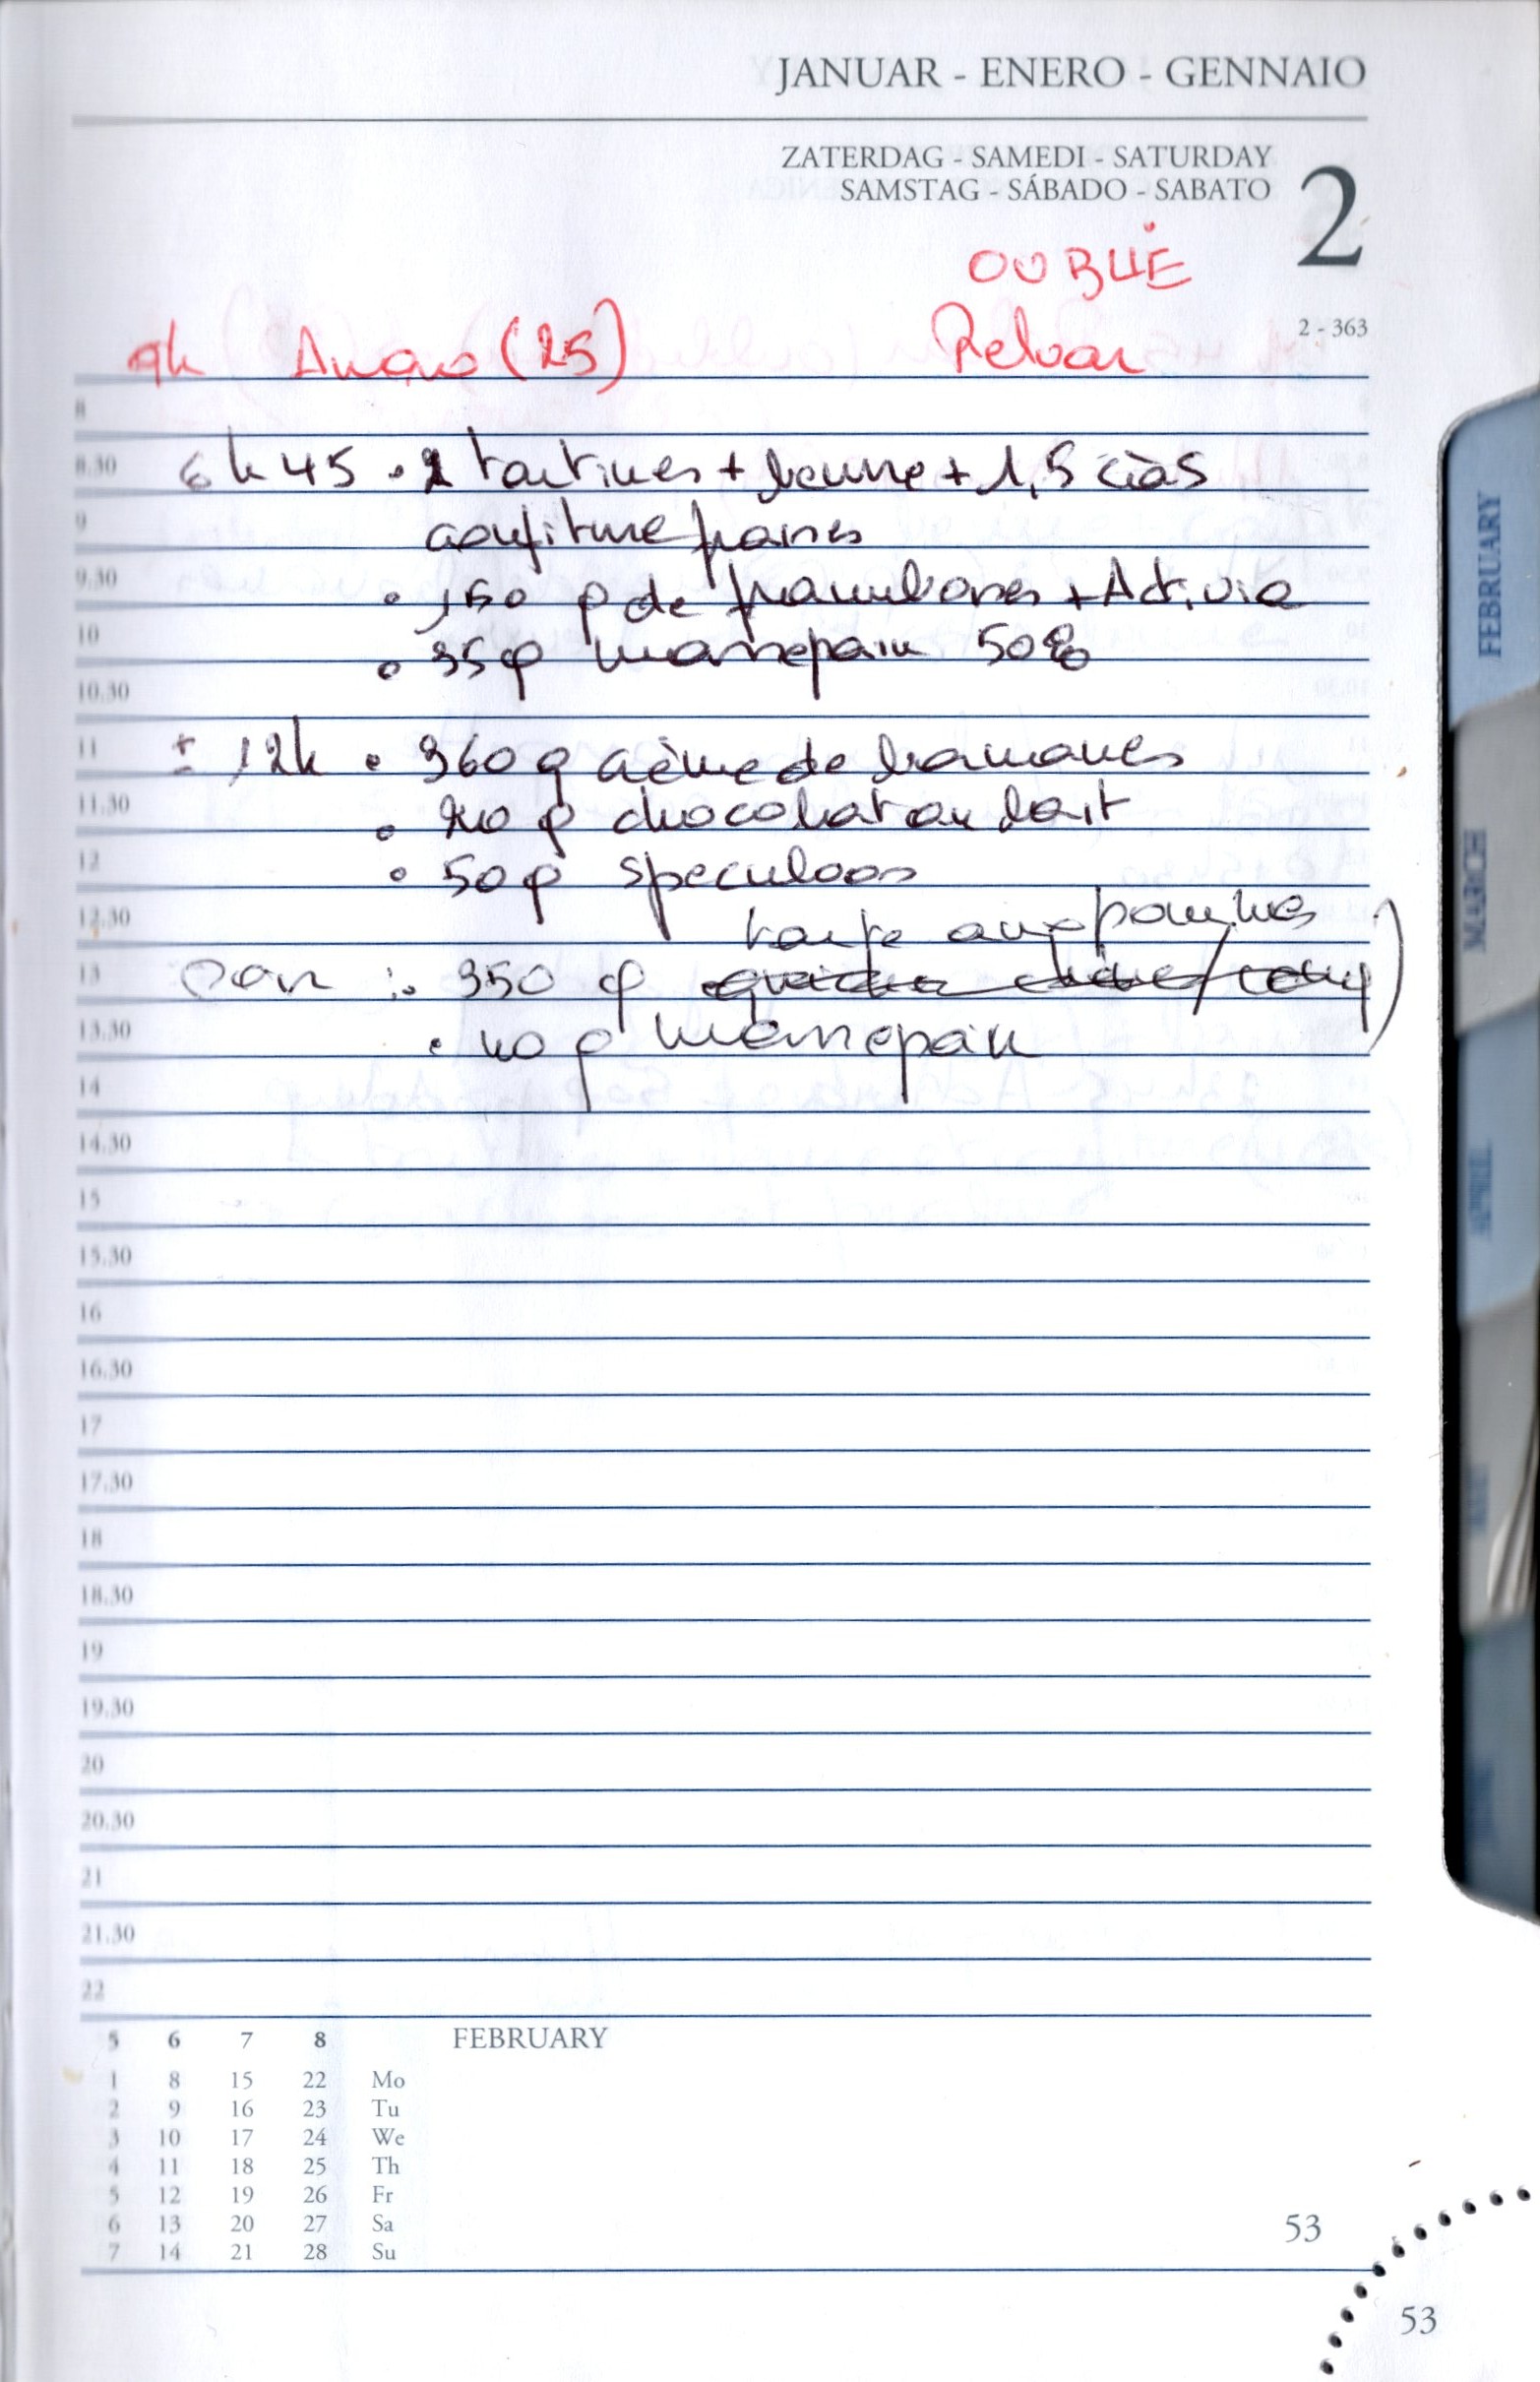 JANUAR - ENERO - GENNAIO
ZATERDAG - SAMEDI - SATURDAY
SAMSTAG - SÁBADO - SABATO
2
OUBLIÉ
2 - 363
9h (25)
8
8.30 6h45 • 2 tartines + beurre + 1,5 càs
9 confiture fraises
9.30 • 150 g de framboises + Activia
10 • 35 g massepain 50%
10.30
11 ± 12h • 360 g crème de bananes
11.30 • 20 g chocolat au lait
12 • 50 g speculoos
12.30 tarte aux pommes
13 soir : • 350 g
13.30 • 40 g massepain
14
14.30
15
15.30
16
16.30
17
17.30
18
18.30
19
19.30
20
20.30
21
21.30
22
5 6 7 8 FEBRUARY
1 8 15 22 Mo
2 9 16 23 Tu
3 10 17 24 We
4 11 18 25 Th
5 12 19 26 Fr
6 13 20 27 Sa
7 14 21 28 Su
53
53
FEBRUARY
MARCH
APRIL